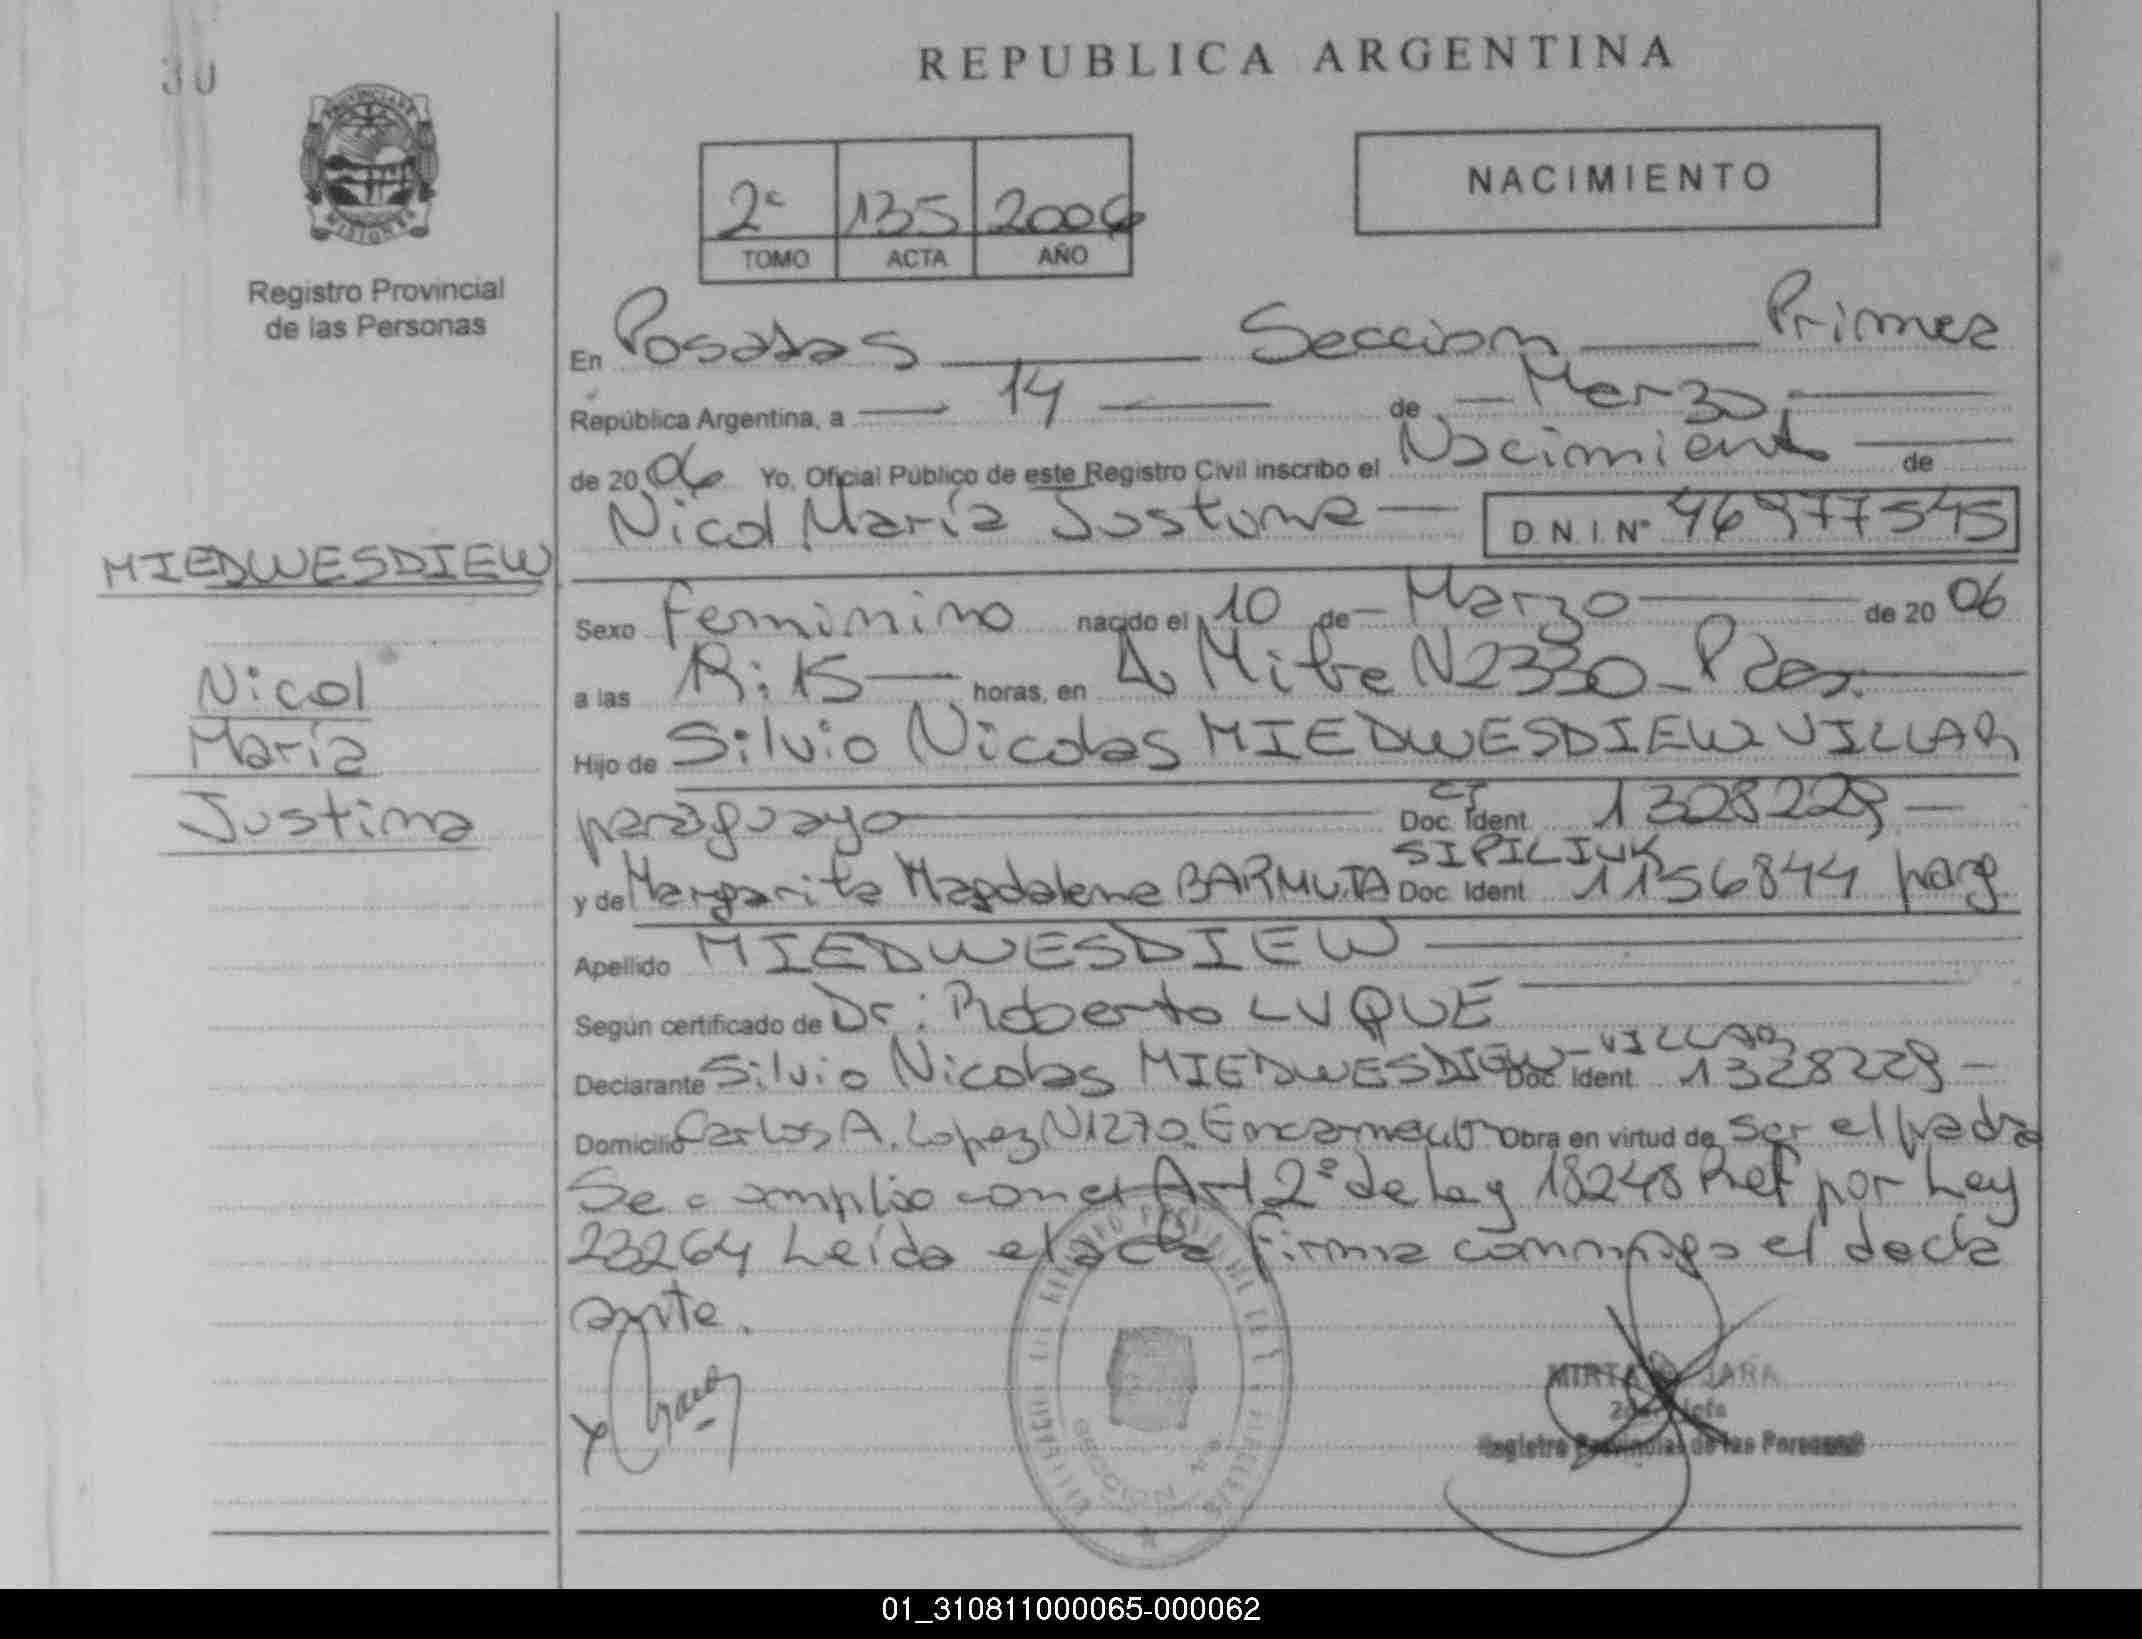 30
REPUBLICA ARGENTINA
PROVINCIA DE
MISIONES
Registro Provincial
de las Personas
2º 135 2006
TOMO ACTA AÑO
NACIMIENTO
En Posadas Seccion Primera
República Argentina, a 14 de Marzo,
de 2006 Yo, Oficial Público de este Registro Civil inscribo el Nacimiento de
Nicol María Justina D N I. Nº 46977545
MIEDWESDIEW
Nicol
María
Justina
Sexo feminino nacido el 10 de Marzo de 2006
a las :15 horas, en Av Mitre N2330 - Pdas.
Hijo de Silvio Nicolas MIEDWESDIEW VILLAR
paraguayo CI Doc. Ident 1328229
SIPILIUK
y de Margarita Magdalena BARMUTA Doc Ident 1156844 parg
Apellido MIEDWESDIEW
Según certificado de Dr: Roberto LUQUE
Declarante Silvio Nicolas MIEDWESDIEW - VILLAR Doc. Ident 1328229
Domicilio Carlos A. Lopez N1270. Encarnación Obra en virtud de ser el padre
Se cumplio con el Art 2º de Ley 18248 Ref por Ley
23264 Leída el acta firma conmigo el decla
ante.
MIRTA JARA
2da. Jefa
Registro Provincial de las Personas
SECCION
01_310811000065-000062